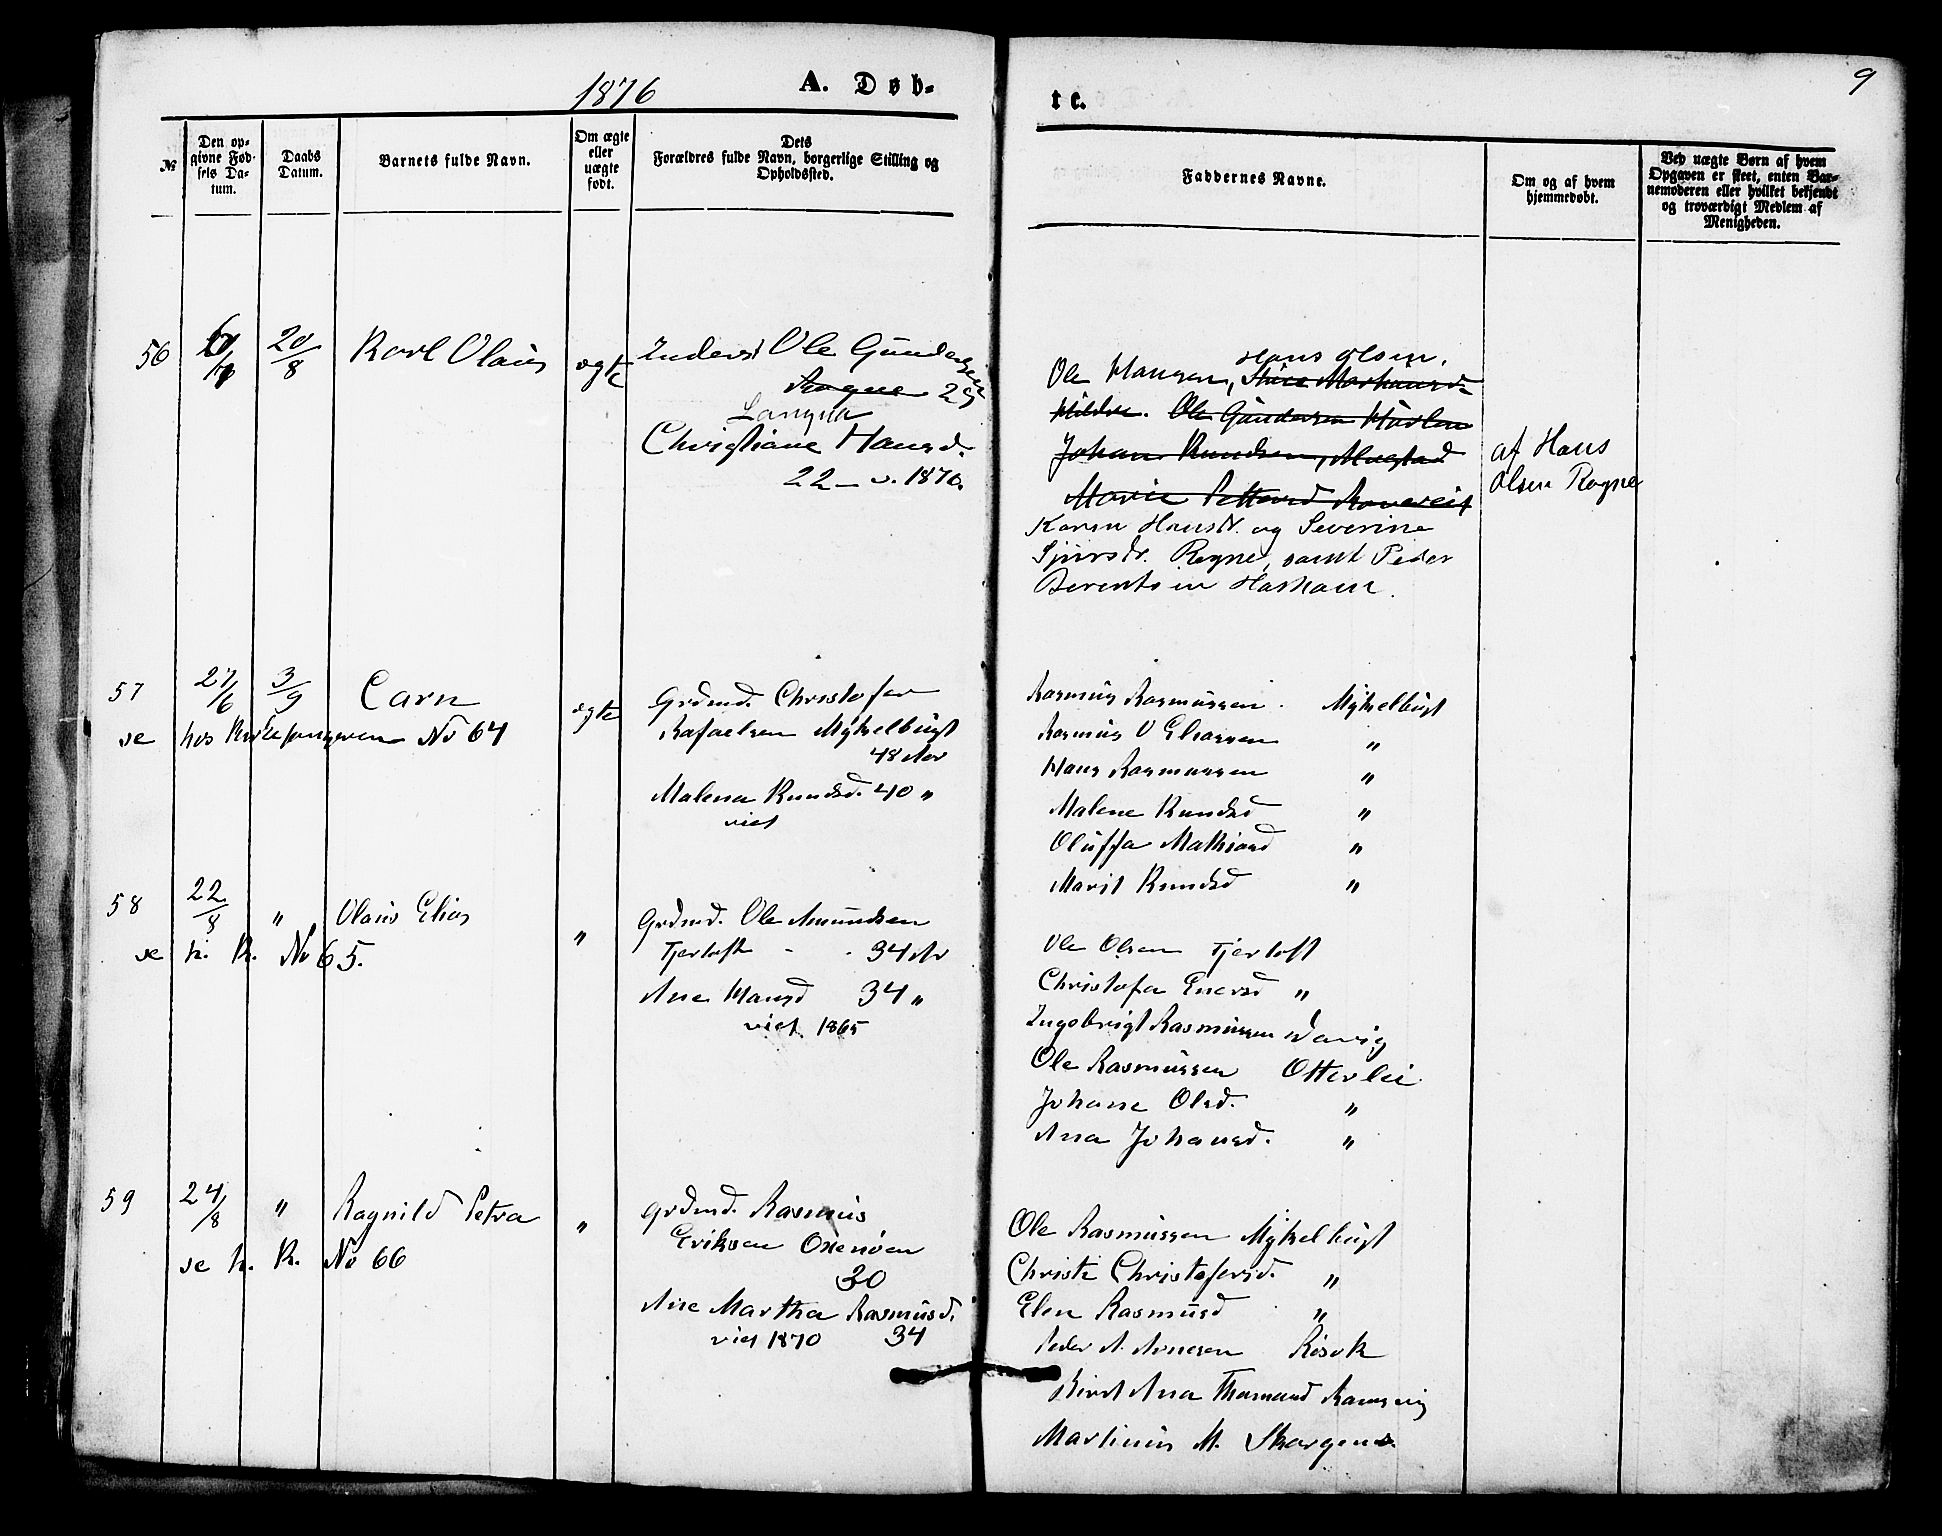 1876
A. Døb-
te.
9
№
Den op-
givne Fød-
sels Da-
tum.
Daabs
Datum.
Barnets fulde Navn.
Om ægte
eller
uægte
født.
Dets
Forældres fulde Navn, borgerlige Stilling og
Opholdssted.
Faddernes Navne.
Om og af hvem
hjemmedøbt.
Ved uægte Børn af hvem
Opgaven er skeet, enten Bar-
nemoderen eller hvilket bekjendt
og troværdigt Medlem af
Menigheden.
56
20/8
Karl Olaus
ægte
Inderst Ole Gundersen
Rogne 29
Longva
Christiane Hansd.
22 – v. 1870.
Hans Olsen.
Ole Hansen,
Ole Gundersen
Johan Knudsen,
Marie Petters
Karen Hansdr. og Severine
Sjursdr. Rogne, samt Peder
Berentsen Hasham.
af Hans
Olsen Rogne
57
27/6
3/9
Carn
ægte
se hos No 64
Grdmd. Christofer
Rafaelsen Mykelbugt
48 Aar
Malena Knudsd. 40 "
viet
Rasmus Rasmussen. Mykelbugt
Rasmus O Eliassen "
Hans Rasmussen "
Malene Knudsd "
Oluffa Mathiasd "
Marit Knudsd "
58
22/8
"
Olaus Elias
"
se h. K. No 65.
Grdmd. Ole Amundsen
Fjertoft - . 34 Ar
Ane Hansd 34 "
viet 1865
Ole Olsen Fjertoft
Christofa Enersd "
Ingebrigt Rasmussen
Ole Rasmussen Otterlei
Johane Olsd. "
Ana Johansd. "
59
24/8
"
Ragnild Petra
"
se h. K. No 66
Grdmd. Rasmus
Eriksen Oxenøen
30
Ane Martha Rasmusd.
viet 1870 34
Ole Rasmussen Mykelbugt
Christi Christofersd. "
Elen Rasmusd "
Peder A. Arnesen Røsok
Ana Thomasd
Martinus M.